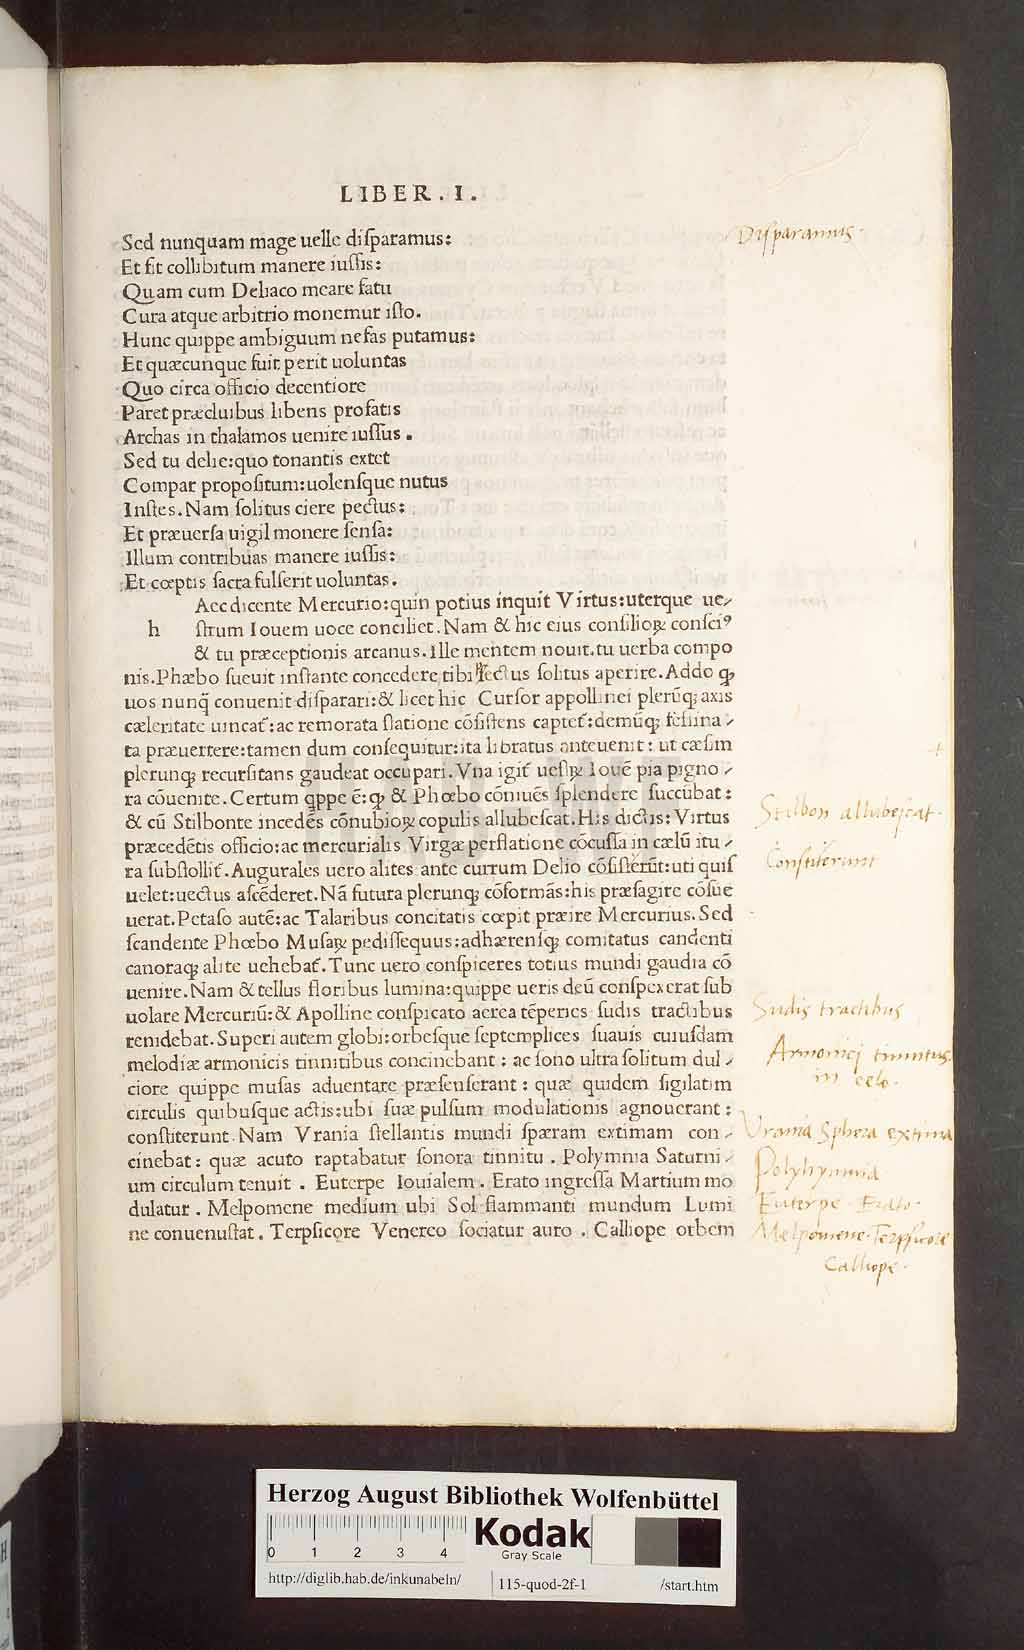 LIBER . I .
Sed nunquam mage uelle diſparamus:
Et fit collibitum manere iuſſis:
Quam cum Deliaco meare fatu
Cura atque arbitrio monemur iſto.
Hunc quippe ambiguum nefas putamus:
Et quæcunque fuit perit uoluntas
Quo circa officio decentiore
Paret præcluibus libens profatis
Archas in thalamos uenire iuſſus .
Sed tu delie:quo tonantis extet
Compar propoſitum:uolenſque nutus
Inſtes. Nam ſolitus ciere pectus:
Et præuerſa uigil monere ſenſa:
Illum contribuas manere iuſſis:
Et cœptis ſacra fulſerit uoluntas .
Aec dicente Mercurio:quin potius inquit Virtus:uterque ue-
h ſtrum Iouem uoce conciliet. Nam & hic eius conſilioꝝ conſciꝰ
& tu præceptionis arcanus. ille mentem nouit.tu uerba compo
nis. Phæbo ſueuit inſtante concedere tibi pectus ſolitus aperire. Addo ꝙ
uos nunq̃ conuenit diſparari:& licet hic Curſor appollinei plerũqꝫ axis
cæleritate uincat᷑:ac remorata ſtatione cõſiſtens captet᷑:demũqꝫ feſtina-
ta præuertere:tamen dum conſequitur:ita libratus anteuenit: ut cæſim
plerunqꝫ recurſitans gaudeat occupari. Vna igit᷑ ueſtꝝ Iouẽ pia pigno-
ra cõuenite. Certum qppe ẽ:ꝙ & Phœbo cõniuẽs ſplendere ſuccũbat:
& cũ Stilbonte incedẽs cõnubioꝝ copulis allubeſcat. His dictis: Virtus
præcedẽtis officio:ac mercurialis Virgæ perflatione cõcuſſa in cælũ itu-
ra ſubſtollit᷑. Augurales uero alites ante currum Delio cõſiſterũt:uti quiſ
uelet:uectus aſcẽderet. Nã futura plerunqꝫ cõformãs:his præſagire cõſue
uerat. Petaſo autẽ:ac Talaribus concitatis cœpit præire Mercurius. Sed
ſcandente Phœbo Muſaꝝ pediſſequus:adhærenſqꝫ comitatus candenti
canoraqꝫ alite uehebat᷑. Tunc uero conſpiceres totius mundi gaudia cõ
uenire. Nam & tellus floribus lumina:quippe ueris deũ conſpexerat ſub
uolare Mercuriũ:& Apolline conſpicato aerea tẽperies ſudis tractibus
renidebat. Superi autem globi:orbeſque ſeptemplices ſuauis cuiuſdam
melodiæ armonicis tinnitibus concinebant : ac ſono ultra ſolitum dul-
ciore quippe muſas aduentare præſenſerant : quæ quidem ſigilatim
circulis quibuſque actis:ubi ſuæ pulſum modulationis agnouerant :
conſtiterunt. Nam Vrania ſtellantis mundi ſpæram extimam con-
cinebat: quæ acuto raptabatur ſonora tinnitu . Polymnia Saturni-
um circulum tenuit . Euterpe Iouialem . Erato ingreſſa Martium mo
dulatur . Melpomene medium ubi Sol flammanti mundum Lumi
ne conuenuſtat. Terpſicore Venereo ſociatur auro . Calliope orbem
Diſparamus.
Stilbon allubeſcat.
Conſtiterunt
Sudis tractibus
Armonici tinnitus
in celo.
Vrania Sphera extima
Polyhymnia
Euterpe. Erato.
Melpomene. Terpſicore
Calliope.
HAB-WF
Herzog August Bibliothek Wolfenbüttel
0 1 2 3 4
Kodak
Gray Scale
http://diglib.hab.de/inkunabeln/ 115-quod-2f-1 /start.htm